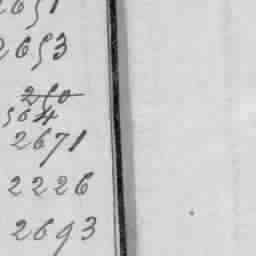 2651
2653
250
564
2671
2226
2693